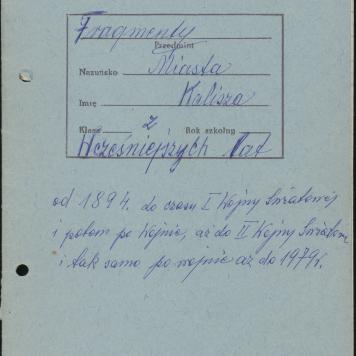 Fragmenty
Przedmiot
Nazwisko Miasta
Imię Kalisza
Klasa z Rok szkolny
Wcześniejszych lat
od 1894. do czasu I Wojny Światowej
i potem po Wojnie, aż do II Wojny Światow.
i tak samo po wojnie aż do 1979r.